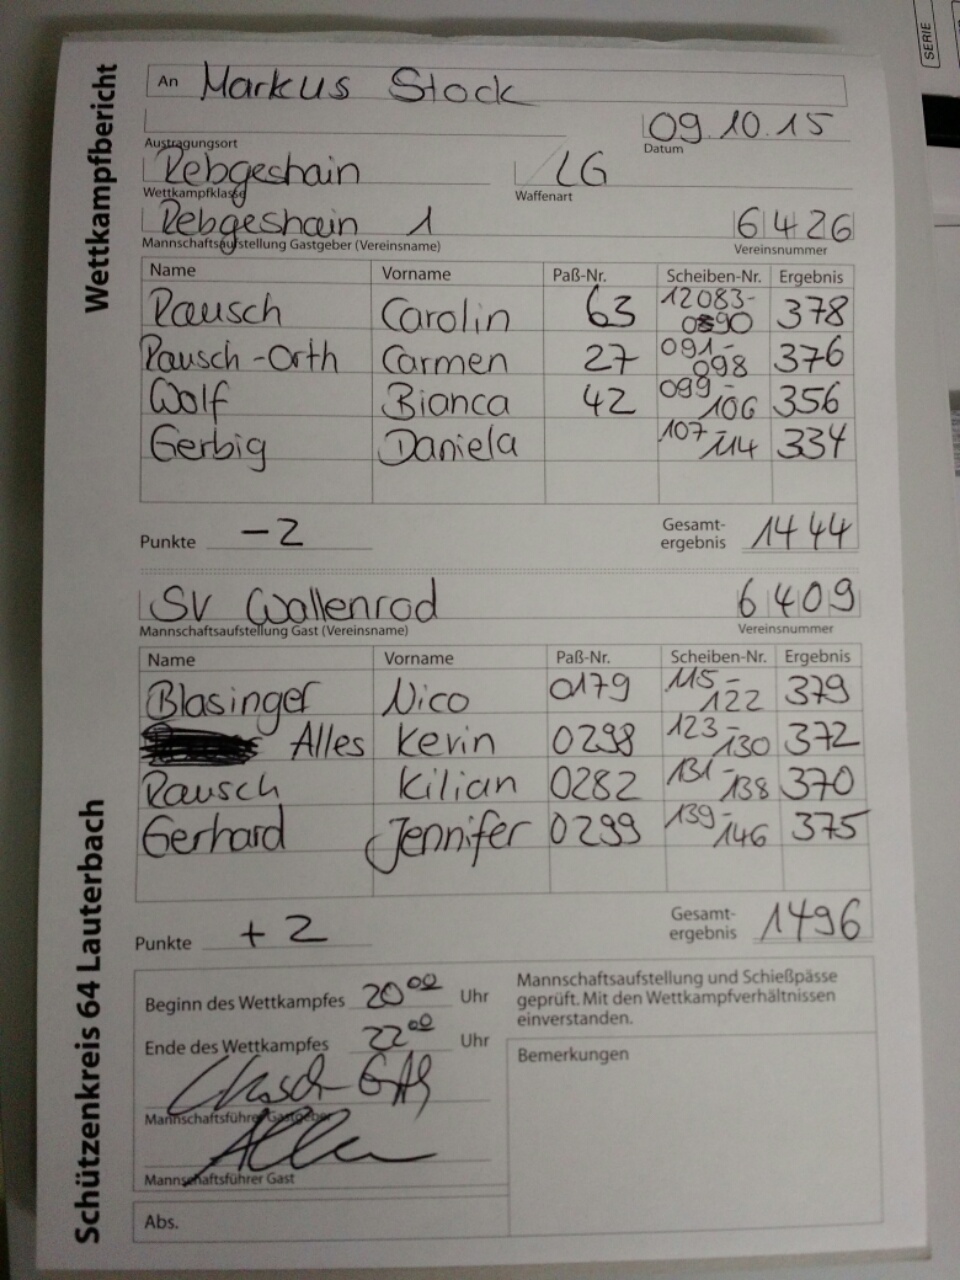 SERIE
Wettkampfbericht
Schützenkreis 64 Lauterbach
An Markus Stock
09.10.15
Austragungsort
Datum
Rebgeshain LG
Wettkampfklasse Waffenart
Rebgeshain 1 6426
Mannschaftsaufstellung Gastgeber (Vereinsname) Vereinsnummer
Name Vorname Paß-Nr. Scheiben-Nr. Ergebnis
Rausch Carolin 63 12083-090 378
Rausch-Orth Carmen 27 091-098 376
Wolf Bianca 42 099-106 356
Gerbig Daniela 107-114 334
Punkte -2 Gesamt-
ergebnis 1444
SV Wallenrod 6409
Mannschaftsaufstellung Gast (Vereinsname) Vereinsnummer
Name Vorname Paß-Nr. Scheiben-Nr. Ergebnis
Blasinger Nico 0179 115-122 379
Alles Kevin 0298 123-130 372
Rausch Kilian 0282 131-138 370
Gerhard Jennifer 0299 139-146 375
Punkte +2 Gesamt-
ergebnis 1496
Beginn des Wettkampfes 20 00 Uhr
Ende des Wettkampfes 22 00 Uhr
Mannschaftsführer Gastgeber
Mannschaftsführer Gast
Abs.
Mannschaftsaufstellung und Schießpässe
geprüft. Mit den Wettkampfverhältnissen
einverstanden.
Bemerkungen